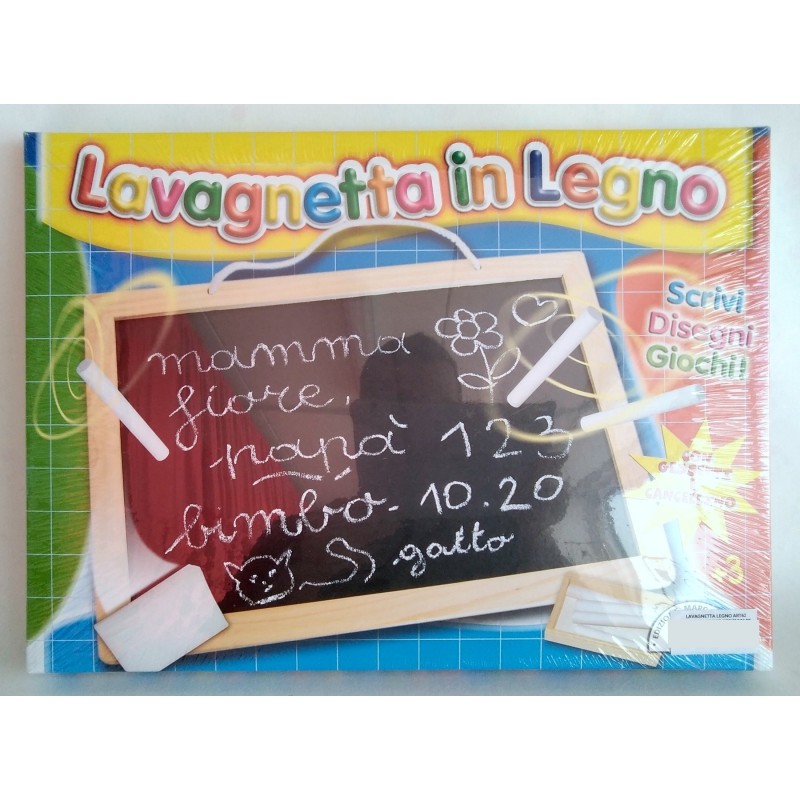 Lavagnetta in Legno
Scrivi
Disegni
Giochi!
mamma
fiore,
papà 123
bimbo - 10.20
gatto
CON
CANCELLINO
+3
LAVAGNETTA LEGNO ART62